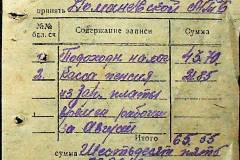 принять Домановской М.Б
№№ бл.сч Содержание записи Сумма
1. Подоходн налог 43.70.
2. Касса пенсия 21.85
из зар. платы
времен рабочих
за Август
Итого 65.55
сумма Шестьдесят пять